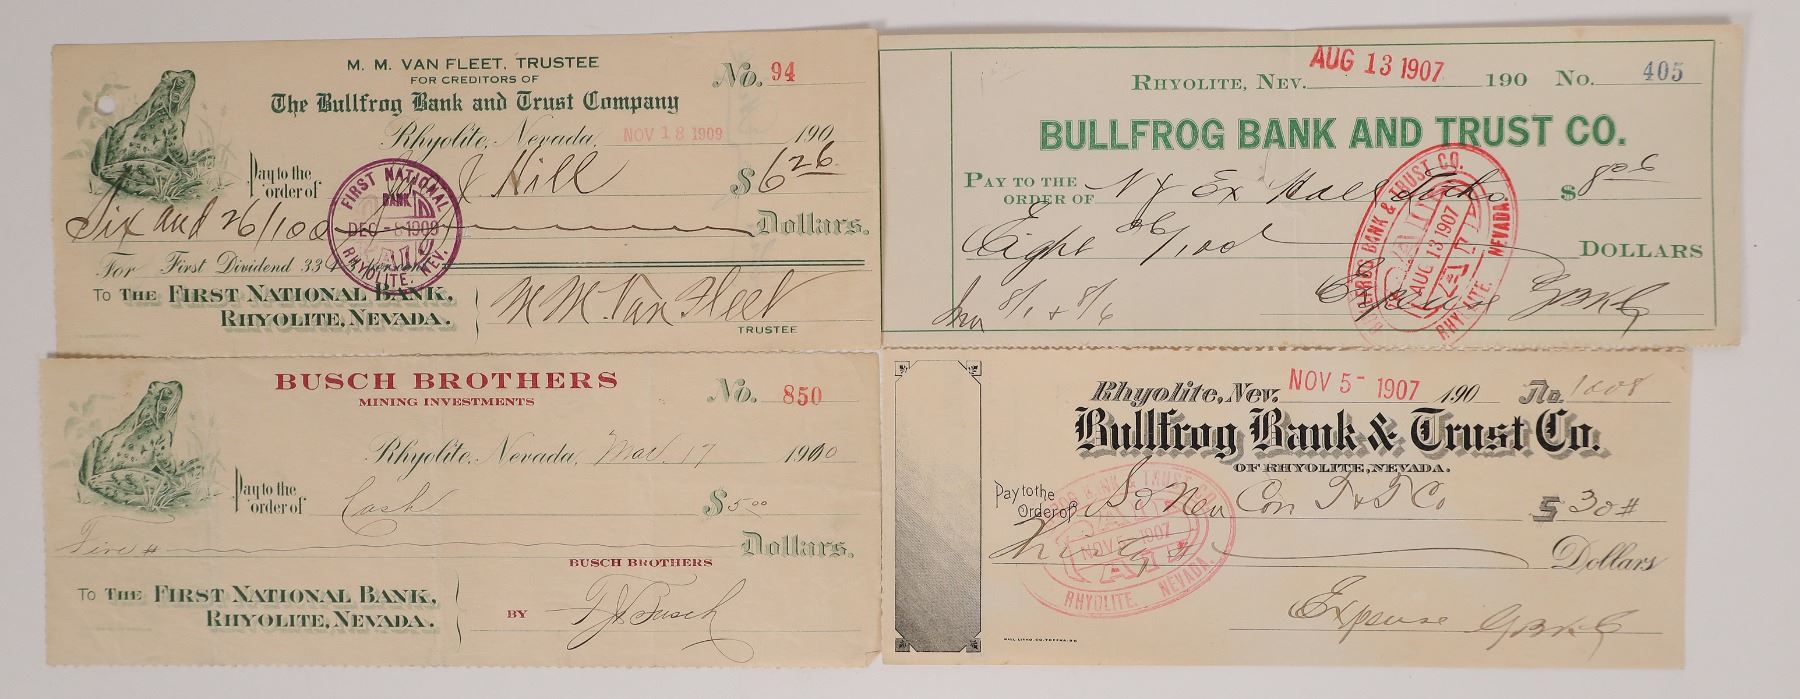 M. M. VAN FLEET, TRUSTEE
FOR CREDITORS OF
No. 94
The Bullfrog Bank and Trust Company
Rhyolite, Nevada, NOV 18 1909 190
Pay to the
order of J Hill $ 6 26
Six and 26/100 Dollars.
For First Dividend 33
FIRST NATIONAL
BANK
PAID
DEC -8 1909
RHYOLITE. NEV.
To THE FIRST NATIONAL BANK,
RHYOLITE, NEVADA.
M M. Van Fleet
TRUSTEE
RHYOLITE, NEV. AUG 13 1907 190 No. 405
BULLFROG BANK AND TRUST CO.
PAY TO THE
ORDER OF N Y Ex $ 8 06
Eight 06/100 DOLLARS
8/1 & 8/6
Expense
BULLFROG BANK & TRUST CO.
PAID
AUG 13 1907
RHYOLITE. NEVADA.
BUSCH BROTHERS
MINING INVESTMENTS
No. 850
Rhyolite, Nevada, Mar. 17 1910
Pay to the
order of Cash $ 5.00
Five # Dollars.
BUSCH BROTHERS
To THE FIRST NATIONAL BANK,
RHYOLITE, NEVADA.
BY Busch
Rhyolite, Nev. NOV 5- 1907 190 No. 1008
Bullfrog Bank & Trust Co.
OF RHYOLITE, NEVADA.
Pay to the
Order of So Nev Con T & T Co $ 30 #
Dollars
BULLFROG BANK & TRUST CO.
PAID
NOV 5 1907
RHYOLITE. NEVADA.
Expense
HALL LITHO. CO. TOPEKA.